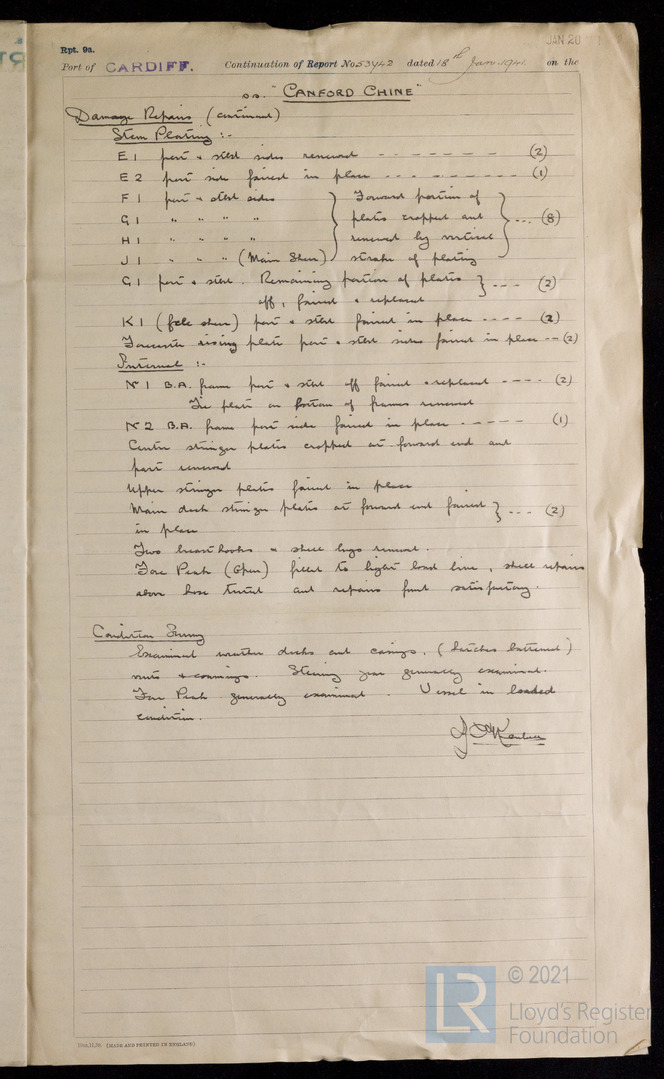 Rpt. 9a.
JAN 20
Port of CARDIFF. Continuation of Report No 53442 dated 18th Jan. 1941. on the
s.s. "CANFORD CHINE"
Damage Repairs (continued)
Stem Plating :-
E1 port & stbd sides renewed - - - - - - - (2)
E2 port side faired in place - - - - - - - (1)
F1 port & stbd sides
G1 " " " "
H1 " " " "
J1 " " " (Main Sheer)
Forward portion of
plates cropped and
renewed by vertical
strake of plating
... (8)
G1 port & stbd. Remaining portion of plates
off, faired & replaced } - - - (2)
K1 (fcle sheer) port & stbd faired in place - - - - (2)
Forecastle rising plate port & stbd sides faired in place -- (2)
Internal :-
No 1 B.A. frame port & stbd off faired & replaced - - - - (2)
Tie plate on bottom of frames renewed
No 2 B.A. frame port side faired in place - - - - - (1)
Centre stringer plates cropped at forward end and
part renewed
Upper stringer plates faired in place
Main deck stringer plates at forward end faired
in place } - - - (2)
Two breasthooks & shell lugs renewed.
Fore Peak (Open) filled to light load line, shell repairs
above hose tested and repairs found satisfactory.
Condition Survey
Examined weather decks and casings, (hatches battened)
vents & coamings. Steering gear generally examined.
Fore Peak generally examined. Vessel in loaded
condition.
10m,11,39. (MADE AND PRINTED IN ENGLAND)
LR
© 2021
Lloyd's Register
Foundation